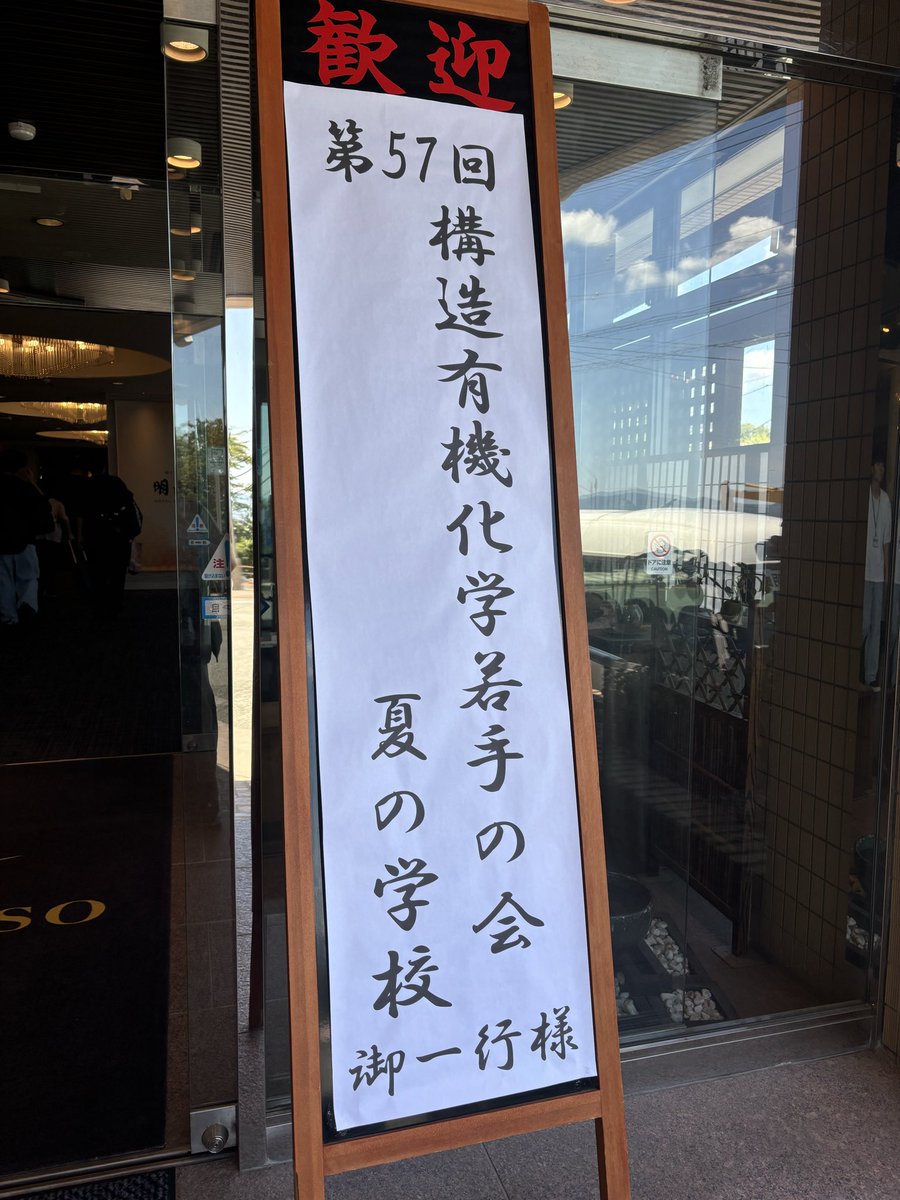 歓迎
第57回
構造有機化学若手の会
夏の学校
御一行様
ドアに注意
CAUTION
注
明
SO